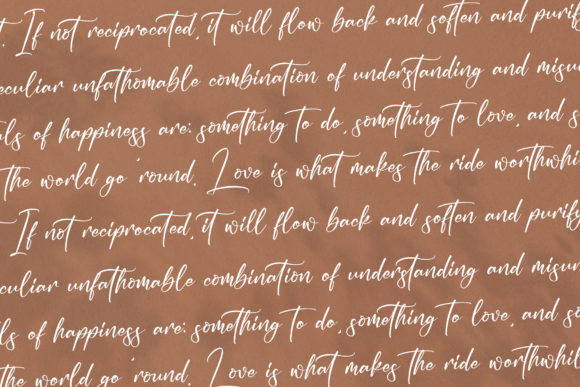 t. If not reciprocated, it will flow back and soften and purify
eculiar unfathomable combination of understanding and misun
als of happiness are: something to do, something to love, and s
the world go 'round. Love is what makes the ride worthwhil
t. If not reciprocated, it will flow back and soften and purify
eculiar unfathomable combination of understanding and misun
als of happiness are: something to do, something to love, and so
the world go 'round. Love is what makes the ride worthwhil